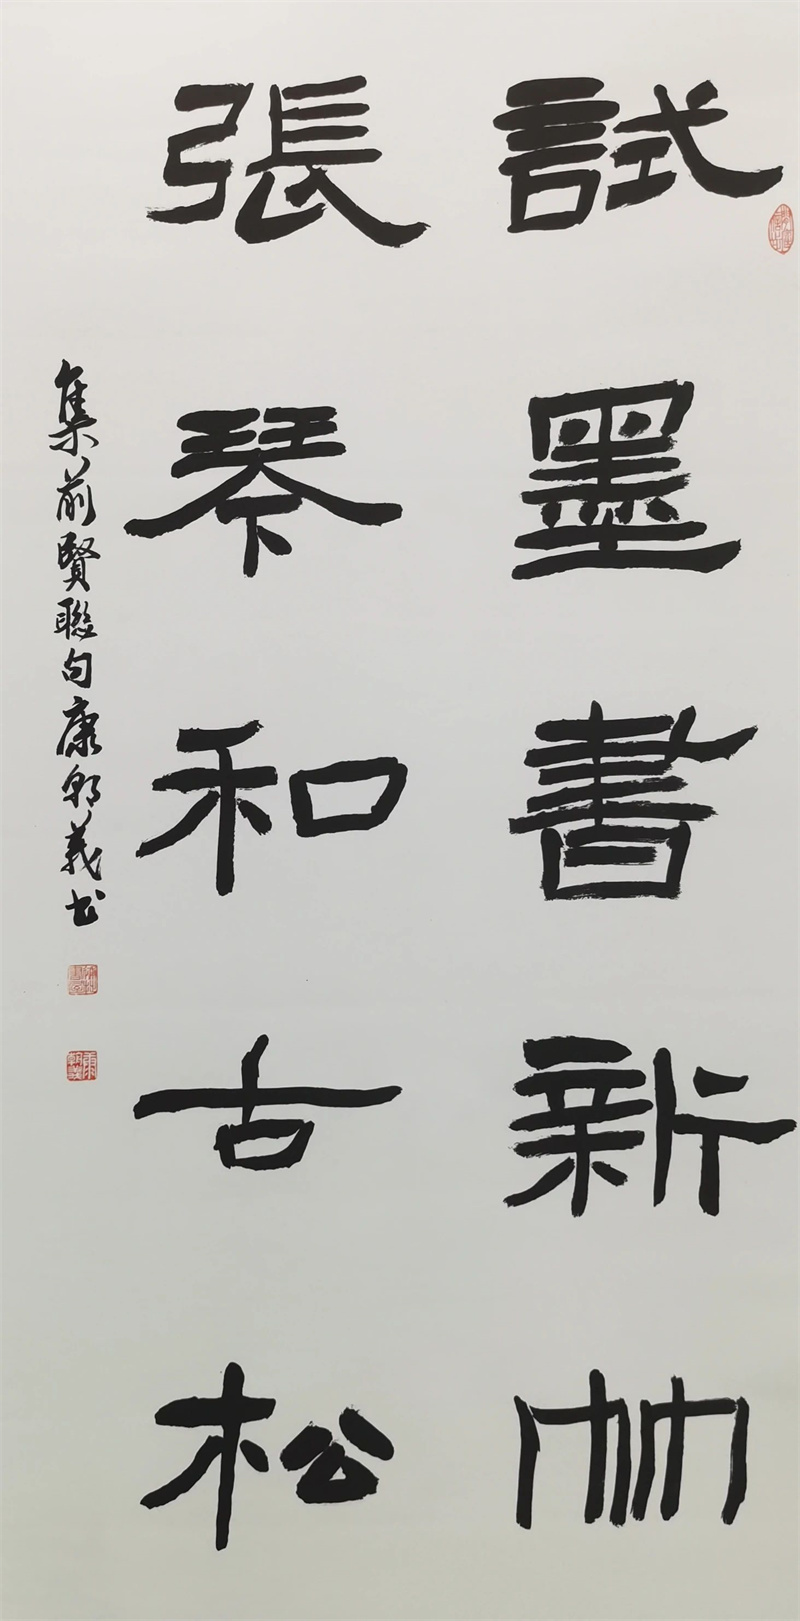 試墨書新竹
張琴和古松
集前賢聯句康朝義書